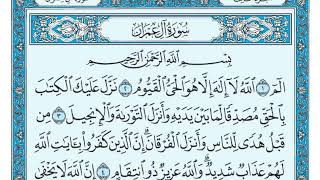 سُورَةُ آلِ عِمْرَانَ
بِسْمِ اللَّهِ الرَّحْمَٰنِ الرَّحِيمِ
الٓمٓ ١ اللَّهُ لَا إِلَٰهَ إِلَّا هُوَ الْحَيُّ الْقَيُّومُ ٢ نَزَّلَ عَلَيْكَ الْكِتَٰبَ
بِالْحَقِّ مُصَدِّقًا لِّمَا بَيْنَ يَدَيْهِ وَأَنزَلَ التَّوْرَىٰةَ وَالْإِنجِيلَ ٣ مِن
قَبْلُ هُدًى لِّلنَّاسِ وَأَنزَلَ الْفُرْقَانَ إِنَّ الَّذِينَ كَفَرُوا بِـَٔايَٰتِ اللَّهِ
لَهُمْ عَذَابٌ شَدِيدٌ وَاللَّهُ عَزِيزٌ ذُو انتِقَامٍ ٤ إِنَّ اللَّهَ لَا يَخْفَىٰ